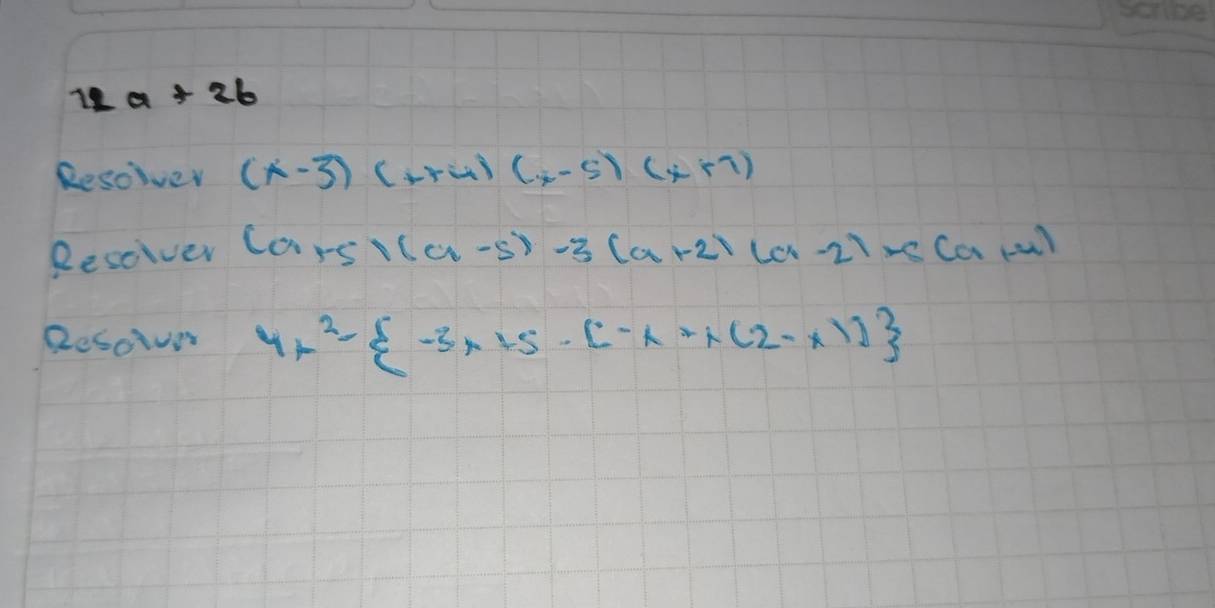 Scribe
12a + 2b
Resolver (x-3) (x+4) (x-5) (x+1)
Resolver (a+5)(a-5) -3(a+2)(a-2)+5(a+4)
Resolver 4x²-{-3x+5-[-x+x(2-x)]}